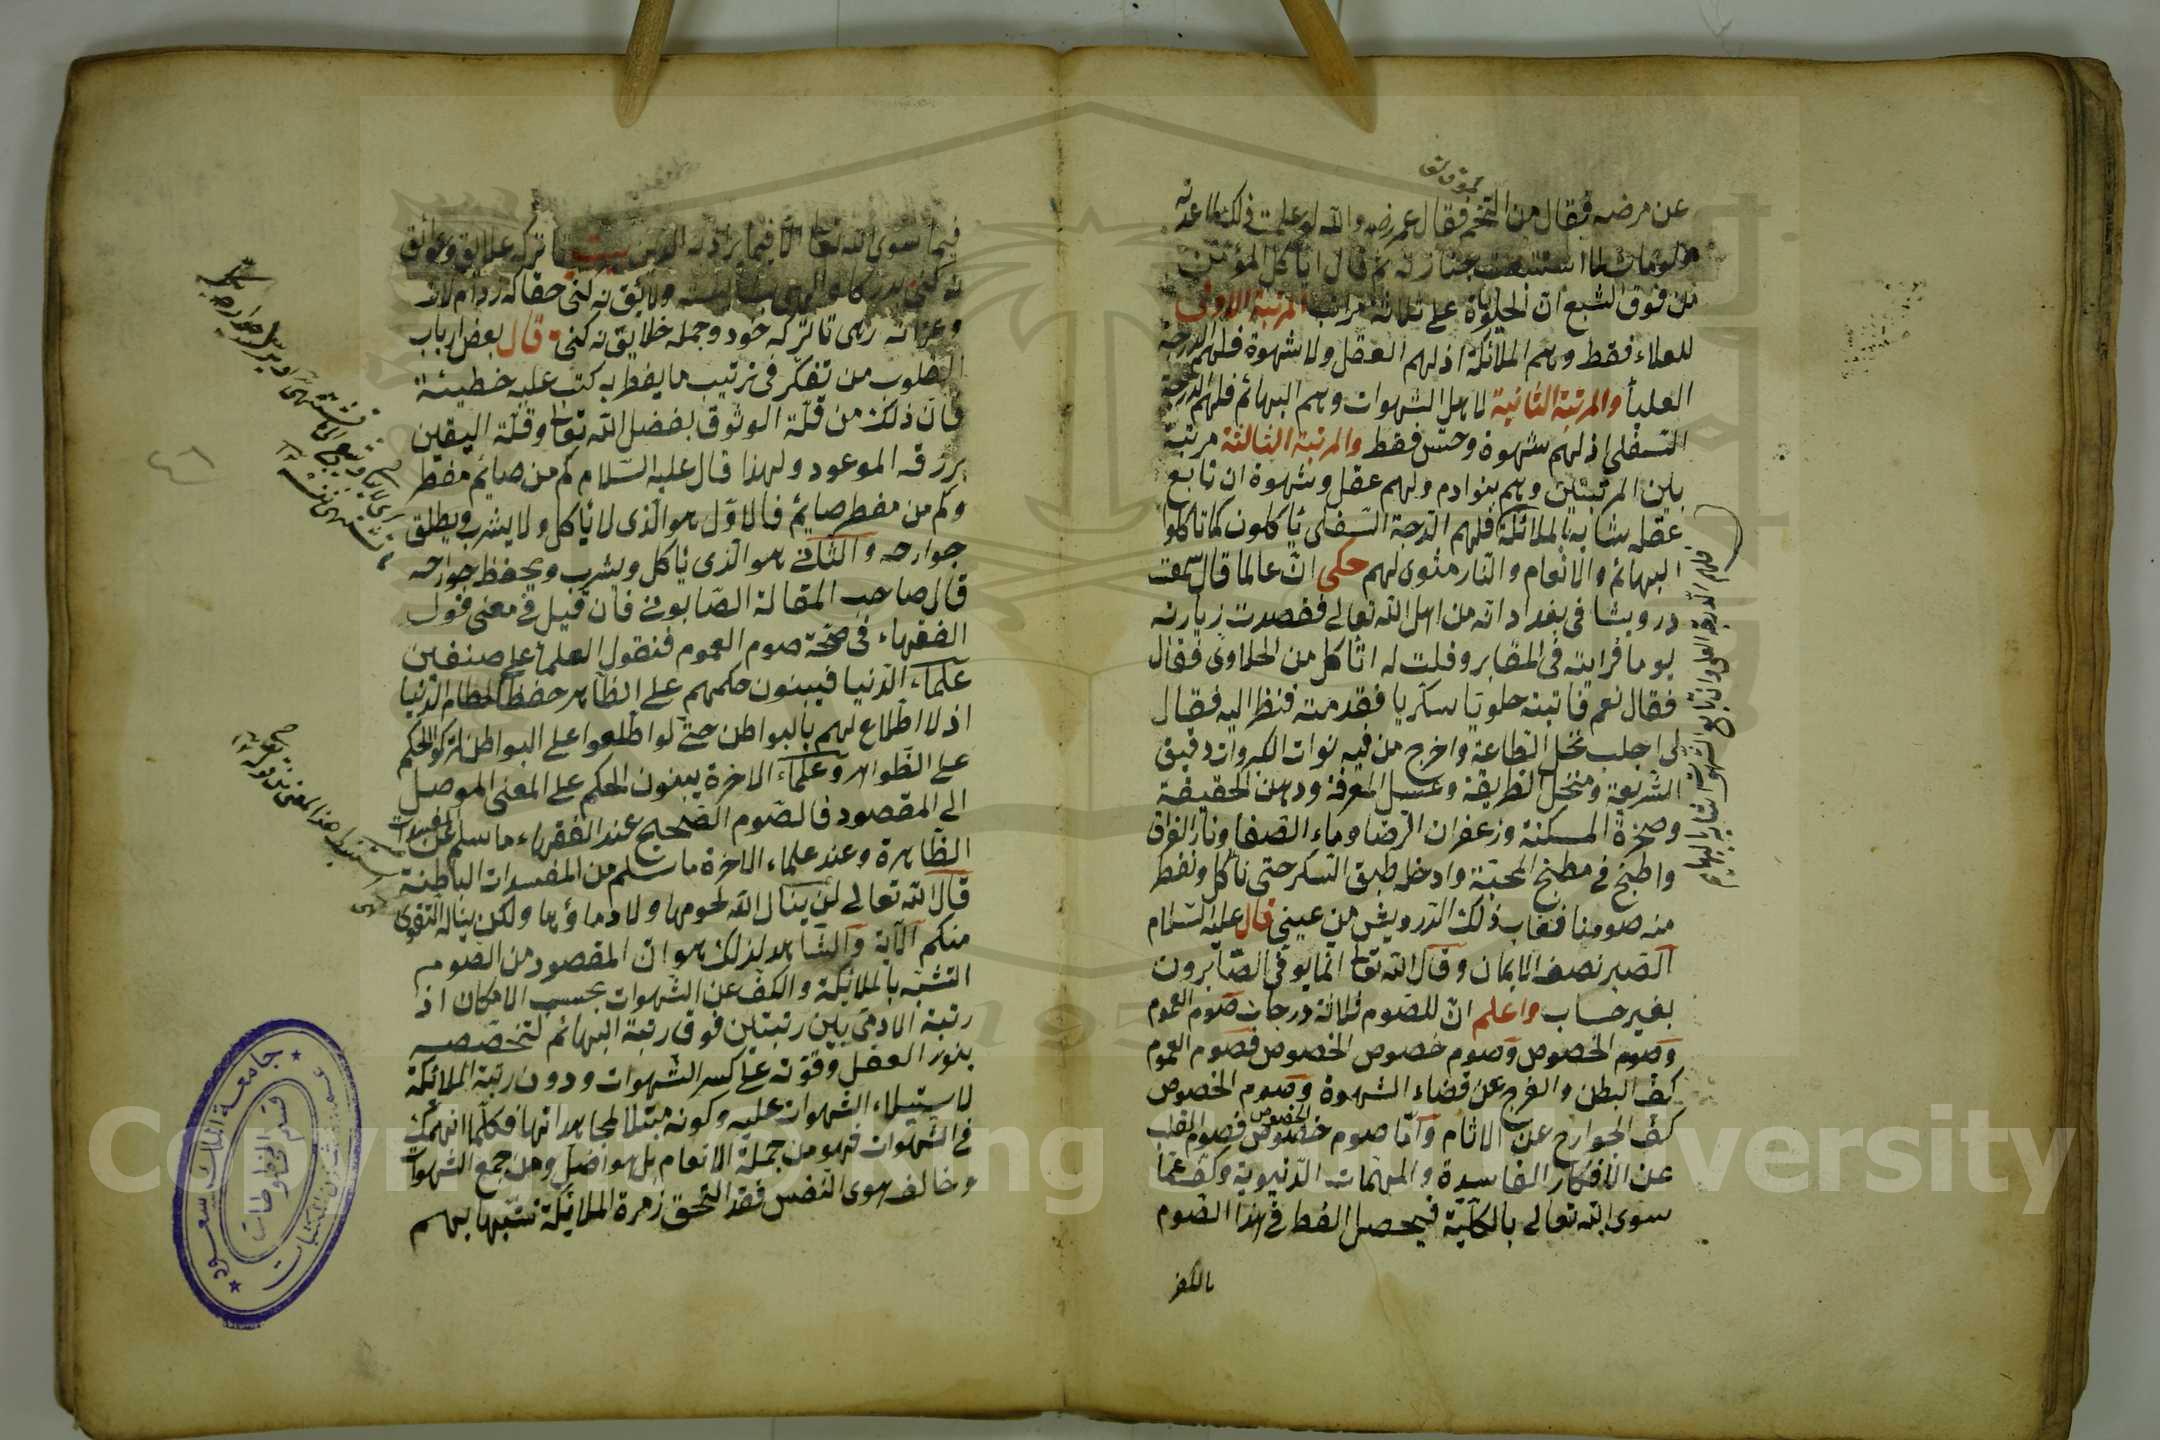 عن مرضه فقال من التخم فقال عمر رضه والله لو علمت ذلك ما عدته
ولو مات لما استتبعت جنازته ثم قال اياكل المؤمن
من فوق الشبع ان الحيوة على ثلاثة مراتب المرتبة الاولى
للعلاء فقط وهم الملائكة اذ لهم العقل ولا شهوة فلهم الدرجة
العليا والمرتبة الثانية لاهل الشهوات وهم البهائم فلهم الدرجة
السفلى اذ لهم شهوة وحس فقط والمرتبة الثالثة مرتبة
بين المرتبتين وهم بنوادم ولهم عقل وشهوة ان تابع
عقله شابه بالملائكة فلهم الدرجة السفلى ياكلون كما تاكلوا
البهائم والانعام والنار مثوى لهم حكى ان عالما قال سمعت
درويشا فى بغداد انه من اهل الله تعالى فقصدت زيارته
يوما فرايته فى المقابر وقلت له اتاكل من الحلاوى فقال
فقال نعم فاتيته حلويا سكريا فقدمته فنظر اليه فقال
لى اجلب نخل الطاعة واخرج من فيه نوات الكبر وات دقيق
الشريعة ومنخل الطريقة وعسل المعرفة ودهن الحقيقة
وصخرة المسكنة وزعفران الرضا وماء الصفا ونار الفراق
واطبخ فى مطبخ المحبة وادخل طبق السكر حتى ناكل ونفطر
منه صومنا فغاب ذلك الدرويش من عينى قال عليه السلام
الصبر نصف الايمان وقال الله تعا انما يوفى الصابرون
بغير حساب واعلم ان للصوم ثلاثة درجات صوم العموم
وصوم الخصوص وصوم خصوص الخصوص فصوم العموم
كف البطن والفرج عن قضاء الشهوة وصوم الخصوص
كف الجوارح عن الاثام واما صوم خصوص الخصوص فصوم القلب
عن الافكار الفاسدة والمهمات الدنيوية وكف عما
سوى الله تعالى بالكلية فيحصل الفطر فى هذا الصوم
بالفكر
فلهم الدرجة العليا وان تابع الشهوة شابه البهائم
فيما سوى الله تعا الا فيما يراد به الدين بيت تا ترك علايق وعوائق
نه كنى
ولايق نه كنى حقا كه
تا ترك خود وجمله خلايق نه كنى وقال بعض ارباب
القلوب من تفكر فى ترتيب ما يفطر به كتب عليه خطيئة
فان ذلك من قلة الوثوق بفضل الله تعا وقلة اليقين
برزقه الموعود ولهذا قال عليه السلام كم من صايم مفطر
وكم من مفطر صايم فالاول هو الذى لا ياكل ولا يشرب ويطلق
جوارحه والثانى هو الذى ياكل ويشرب ويحفظ جوارحه
قال صاحب المقالة الصابونى فان قيل فى معنى قول
الفقهاء فى صحة صوم العموم فنقول العلماء على صنفين
علماء الدنيا فيبينون حكمهم على الظاهر حفظا لحطام الدنيا
اذ لا اطلاع لهم بالبواطن حتى لو اطلعوا على البواطن لتركوا الحكم
على الظواهر وعلماء الاخرة يبينون الحكم على المعنى الموصل
الى المقصود فالصوم الصحيح عند الفقهاء ما سلم عن المفسدات
الظاهرة وعند علماء الاخرة ما سلم من المفسدات الباطنة
قال الله تعالى لن ينال الله لحومها ولا دماؤها ولكن يناله التقوى
منكم الآية والشاهد لذلك هو ان المقصود من الصوم
التشبه بالملائكة والكف عن الشهوات بحسب الامكان اذ
رتبة الادمى بين رتبتين فوق رتبة البهائم لتخصصه
بنور العقل وقوته على كسر الشهوات ودون رتبة الملائكة
لاستيلاء الشهوات عليه وكونه مبتلا لمجاهداتها فكلما انهمك
فى الشهوات فهو من جملة الانعام بل هو اضل ومن جمع الشهوات
وخالف هوى النفس فقد التحق زمرة الملائكة تشبها بهم
جامعة الملك سعود
قسم المخطوطات